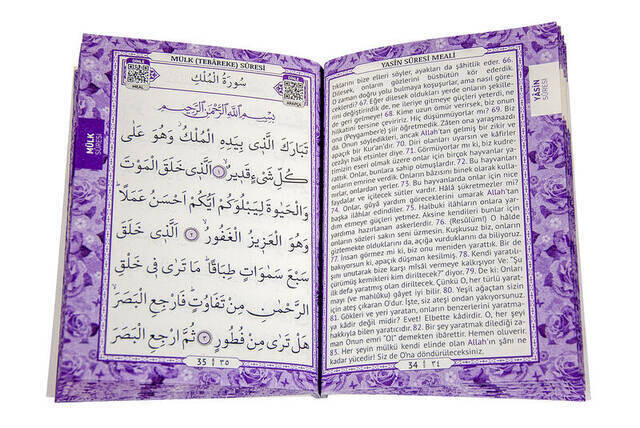 YASİN SÛRESİ MEALİ
YÂSİN
SÛRESİ
taklarını bize elleri söyler, ayakları da şâhitlik eder. 66.
Dilesek, onların gözlerini büsbütün kör ederdik.
O zaman doğru yolu bulmaya koşuşurlar, ama nasıl göre-
ceklerdi? 67. Eğer dilesek oldukları yerde onların şekille-
rini değiştirdik de, ne ileriye gitmeye güçleri yeterdi, ne
de geri gelmeye! 68. Kime uzun ömür verirsek, onun bü-
nyesini tersine çeviririz. Hiç düşünmüyorlar mı? 69. Biz
ona (Peygamber'e) şiir öğretmedik. Zâten ona yaraşmazdı
da. Onun söyledikleri, ancak Allah'tan gelmiş bir zikir ve
apaçık bir Kur'an'dır. 70. Diri olanları uyarsın ve kâfirler
cezâyı hak etsinler diye. 71. Görmüyorlar mı ki, biz kudre-
timizin eseri olmak üzere onlar için birçok hayvanlar ya-
rattık. Onlar, bunlara sahip olmuşlardır. 72. Bu hayvanları
onların emrine verdik. Onların bâzısını binek olarak kulla-
nırlar, onlardan yerler. 73. Bu hayvanlarda onlar için nice
faydalar ve içilecek sütler vardır. Hâlâ şükretmezler mi?
74. Onlar, güyâ yardım göreceklerini umarak Allah'tan
başka ilâhlar edindiler. 75. Halbuki ilâhların onlara yar-
dım etmeye güçleri yetmez. Aksine kendileri bunlar için
yardıma hazırlanan askerlerdir. 76. (Resûlüm!) O hâlde
onların sözleri sakın seni üzmesin. Kuşkusuz biz, onların
gizlemekte olduklarını da, açığa vurduklarını da biliyoruz.
77. İnsan görmez mi ki, biz onu meniden yarattık. Bir de
bakıyorsun ki, apaçık düşman kesilmiş. 78. Kendi yaratılı-
şını unutarak bize karşı misâl vermeye kalkışıyor Ve: "Şu
çürümüş kemikleri kim diriltecek?" diyor. 79. De ki: Onları
ilk defa yaratmış olan diriltecek. Çünkü O, her türlü yarat-
mayı (ve mahlûku) gâyet iyi bilir. 80. Yeşil ağaçtan sizin
için ateş çıkaran O'dur. İşte, siz ateşi ondan yakıyorsunuz.
81. Gökleri ve yeri yaratan, onların benzerlerini yaratma-
ya kâdir değil midir? Evet! Elbette kâdirdir. O, her şeyi
hakkıyla bilen yaratıcıdır. 82. Bir şey yaratmak dilediği za-
man Onun emri "Ol" demekten ibârettir. Hemen oluverir.
83. Her şeyin mülkü kendi elinde olan Allah'ın şânı ne
kadar yücedir! Siz de O'na döndürüleceksiniz.
34 | ٣٤
MÜLK (TEBÂREKE) SÛRESİ
MÜLK
SÛRESİ
MEAL
سُورَةُ الْمُلْكِ
ARAPÇA
بِسْمِ اللّٰهِ الرَّحْمٰنِ الرَّحِيمِ
تَبَارَكَ الَّذِي بِيَدِهِ الْمُلْكُ وَهُوَ عَلٰى
كُلِّ شَيْءٍ قَدِيرٌ ۙ ﴿١﴾ اَلَّذِي خَلَقَ الْمَوْتَ
وَالْحَيٰوةَ لِيَبْلُوَكُمْ اَيُّكُمْ اَحْسَنُ عَمَلًا ؕ
وَهُوَ الْعَزِيزُ الْغَفُورُ ۙ ﴿٢﴾ اَلَّذِي خَلَقَ
سَبْعَ سَمٰوَاتٍ طِبَاقًا ؕ مَا تَرٰى فِي خَلْقِ
الرَّحْمٰنِ مِنْ تَفَاوُتٍ ؕ فَارْجِعِ الْبَصَرَ ۙ
هَلْ تَرٰى مِنْ فُطُورٍ ﴿٣﴾ ثُمَّ ارْجِعِ الْبَصَرَ
35 | ٣٥